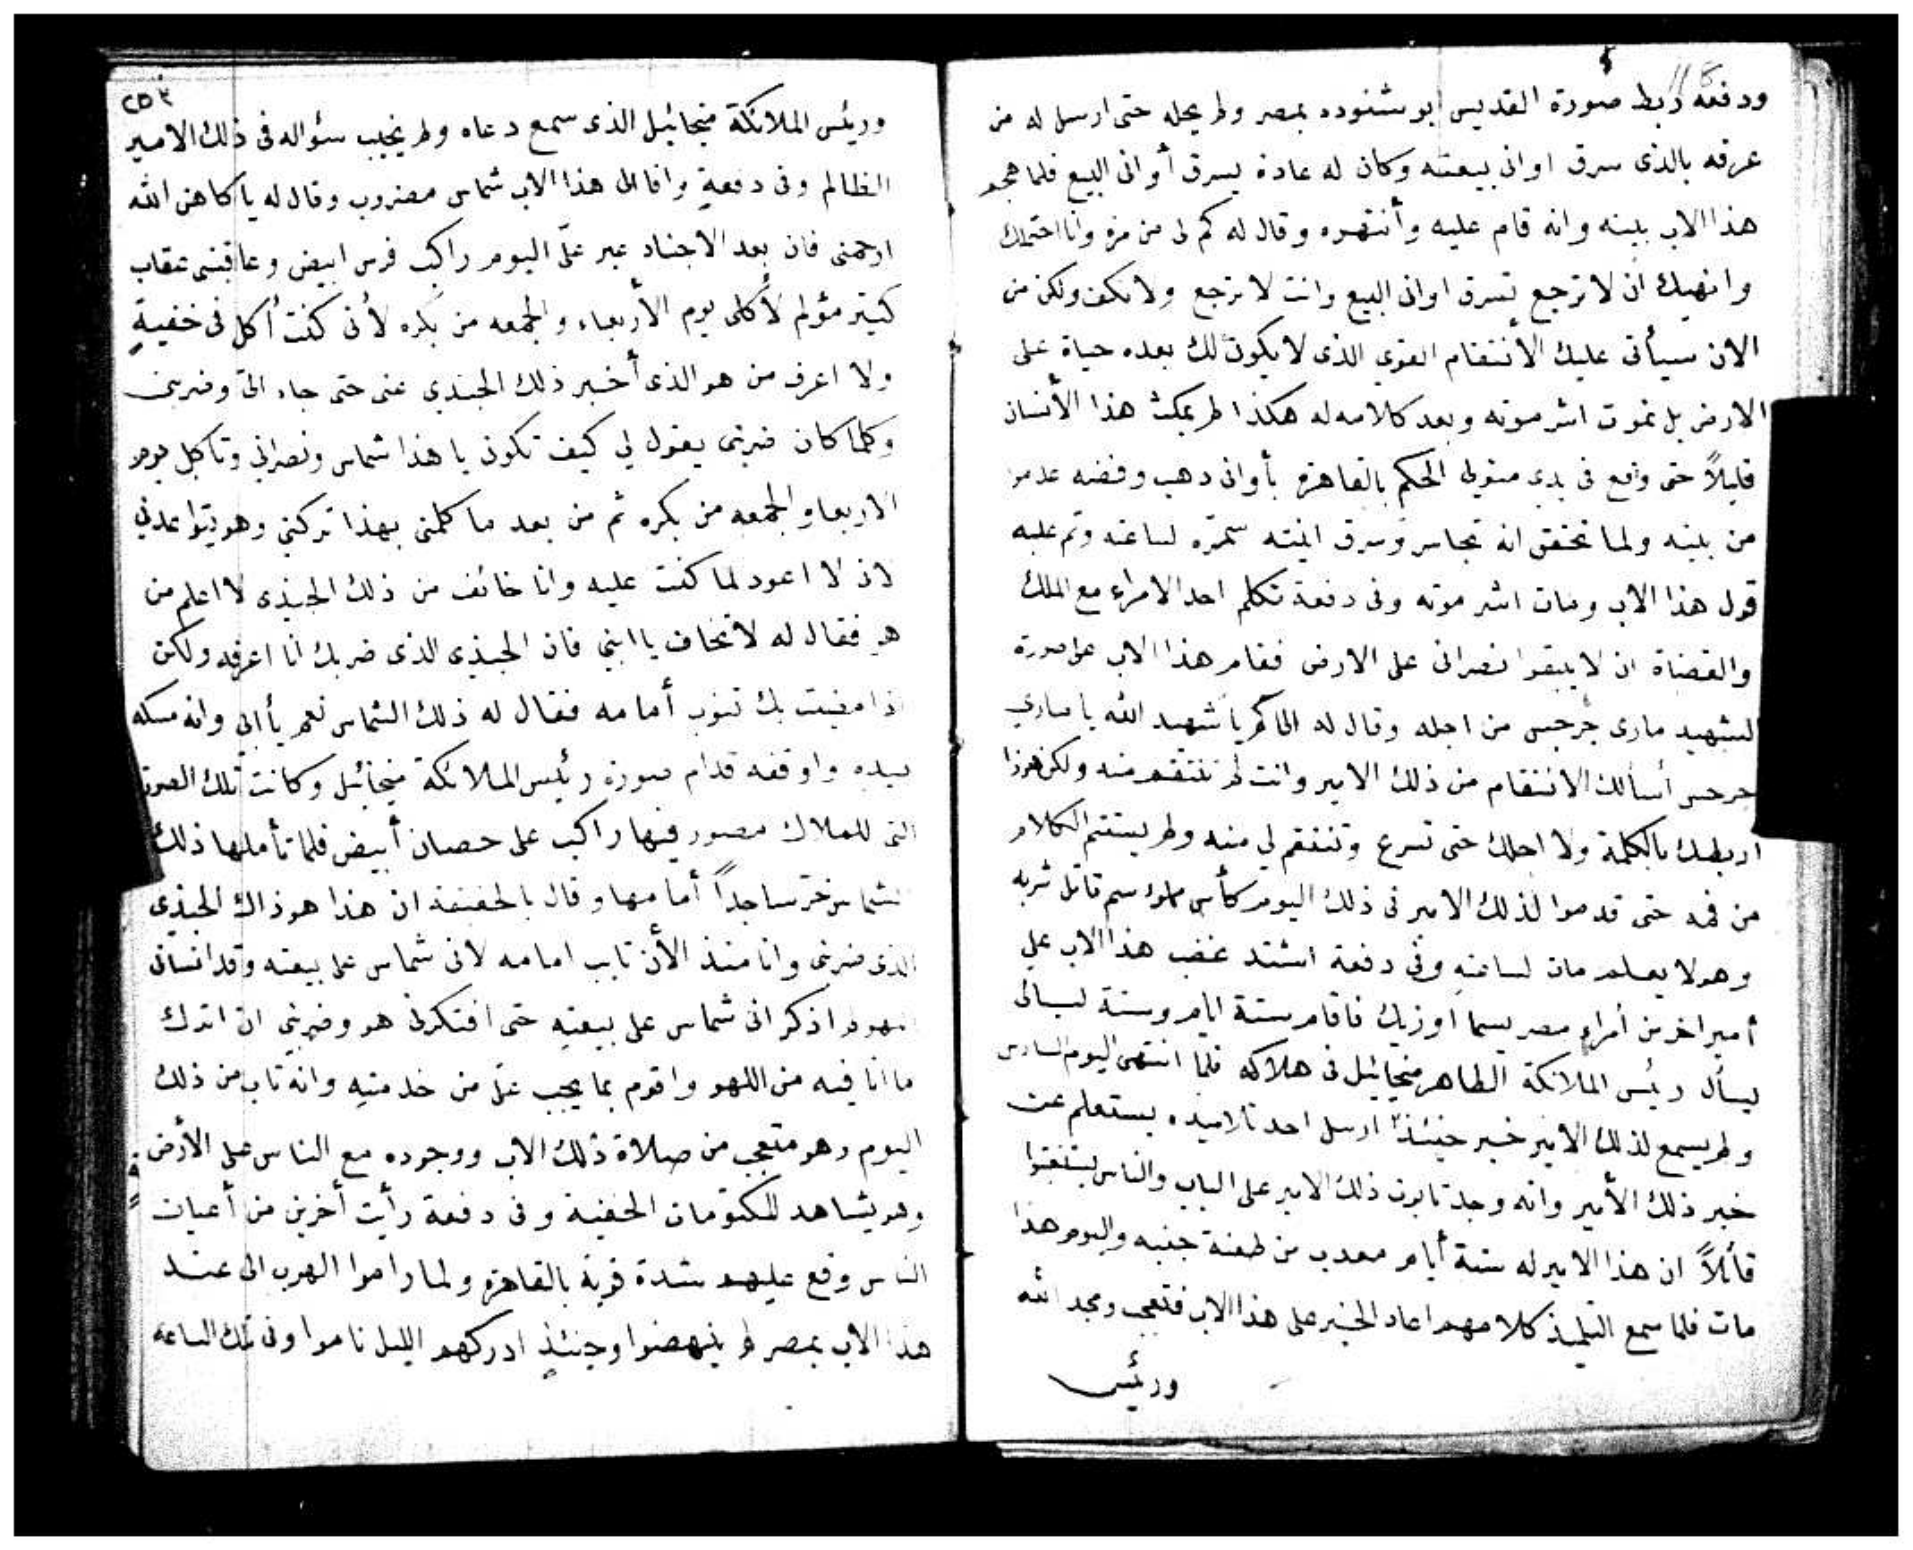 118
ودفعه ربط صورة القديس ابو شنوده بمصر ولم يحله حتى ارسل له من
عرفه بالذى سرق اوانى بيعته وكان له عادة يسرق أوانى البيع فلما هجم
هذا الاب بيته وانه قام عليه وأنتهره وقال له كم لى من مرة وانا احتملك
وانهيك ان لا ترجع تسرق اوانى البيع وانت لا ترجع ولا تكف ولكن من
الان سيأتى عليك الأنتقام القوي الذى لا يكون لك بعده حياة على
الارض بل تموت اشر موته وبعد كلامه له هكذا لم يمكث هذا الأنسان
قليلاً حتى وقع فى يدى متولى الحكم بالقاهرة بأوانى دهب وفضه عدموا
من بيته ولما تحقق انه تجاسر وسرق انيته سمّره لساعته وتم عليه
قول هذا الاب ومات اشر موته وفى دفعة تكلم احد الامراء مع الملك
والقضاة ان لا يبقوا نصرانى على الارض فقام هذا الاب على صورة
الشهيد مارى جرجس من اجله وقال له الحاكم يا شهيد الله يا مارى
جرجس أسألك الانتقام من ذلك الامير وانت لم تنتقم منه ولكن هوذا
اربطك بالكلمة ولا احلك حتى تسرع وتنتقم لي منه ولم يستتم الكلام
من فمه حتى قدموا لذلك الامير فى ذلك اليوم كأس مملوء سم قاتل شربه
وهو لا يعلم مات لساعته وفى دفعة اشتد غضب هذا الاب على
أمير اخر من أمراء مصر يسما اوزبك فاقام ستة ايام وستة ليالى
يسأل رئيس الملائكة الطاهر ميخائيل فى هلاكه فلما انتهى اليوم السادس
ولم يسمع لذلك الامير خبر حينئذ ارسل احد تلاميده يستعلم عن
خبر ذلك الأمير وانه وجد تابوت ذلك الامير على الباب والناس
قائلاً ان هذا الامير له ستة أيام معدب من طعنة جنبه واليوم هذا
مات فلما سمع التلميذ كلامهم اعاد الخبر على هذا الاب فتعجب ومجد الله
ورئيس
٢٥٣
ورئيس الملائكة ميخائيل الذى سمع دعاه ولم يخيب سئواله فى ذلك الامير
الظالم وفى دفعةٍ وافا الى هذا الاب شماس مضروب وقال له يا كاهن الله
ارحمنى فان بعد الاجناد عبر علّى اليوم راكب فرس ابيض وعاقبنى عقاب
كتير مؤلم لأكلى يوم الأربعاء والجمعه من بكره لأنى كنت أكل فى خفيةٍ
ولا اعرف من هو الذى أخبر ذلك الجندي عنى حتى جاء الىّ وضربنى
وكلما كان ضربنى يقول لي كيف تكون يا هذا شماس ونصرانى وتأكل يوم
الاربعا والجمعه من بكره ثم من بعد ما كلمنى بهذا تركني وهو يتواعدني
لان لا اعود لما كنت عليه وانا خائف من ذلك الجندى لا اعلم من
هو فقال له لا تخاف يا ابني فان الجندى الذى ضربك انا اعرفه ولكن
اذا مضيت بك تتوب أمامه فقال له ذلك الشماس نعم يأ ابى وانه مسكه
بيده واوقفه قدام صورة رئيس الملائكة ميخائيل وكانت تلك الصورة
التى للملاك مصور فيها راكب على حصان أبيض فلما تأملها ذلك
الشماس خر ساجداً أمامها وقال بالحقيقة ان هذا هو ذاك الجندى
الذى ضربنى وانا منذ الأن تايب امامه لانى شماس على بيعته وقد انسانى
اللهو اذكر انى شماس على بيعته حتى افتكرنى هو وضربني ان اترك
ما انا فيه من اللهو واقوم بما يجب علّى من خدمتهِ وانه تاب من ذلك
اليوم وهو متعجب من صلاة ذلك الاب ووجوده مع الناس على الأرض
وهو يشاهد المكتومات الخفية وفى دفعة رأيت أخرين من أعيان
الناس وقع عليهم شدة قوية بالقاهرة ولما راموا الهرب الى عند
هذا الاب بمصر لم ينهضوا وحينئذٍ ادركهم الليل ناموا وفى تلك الساعة